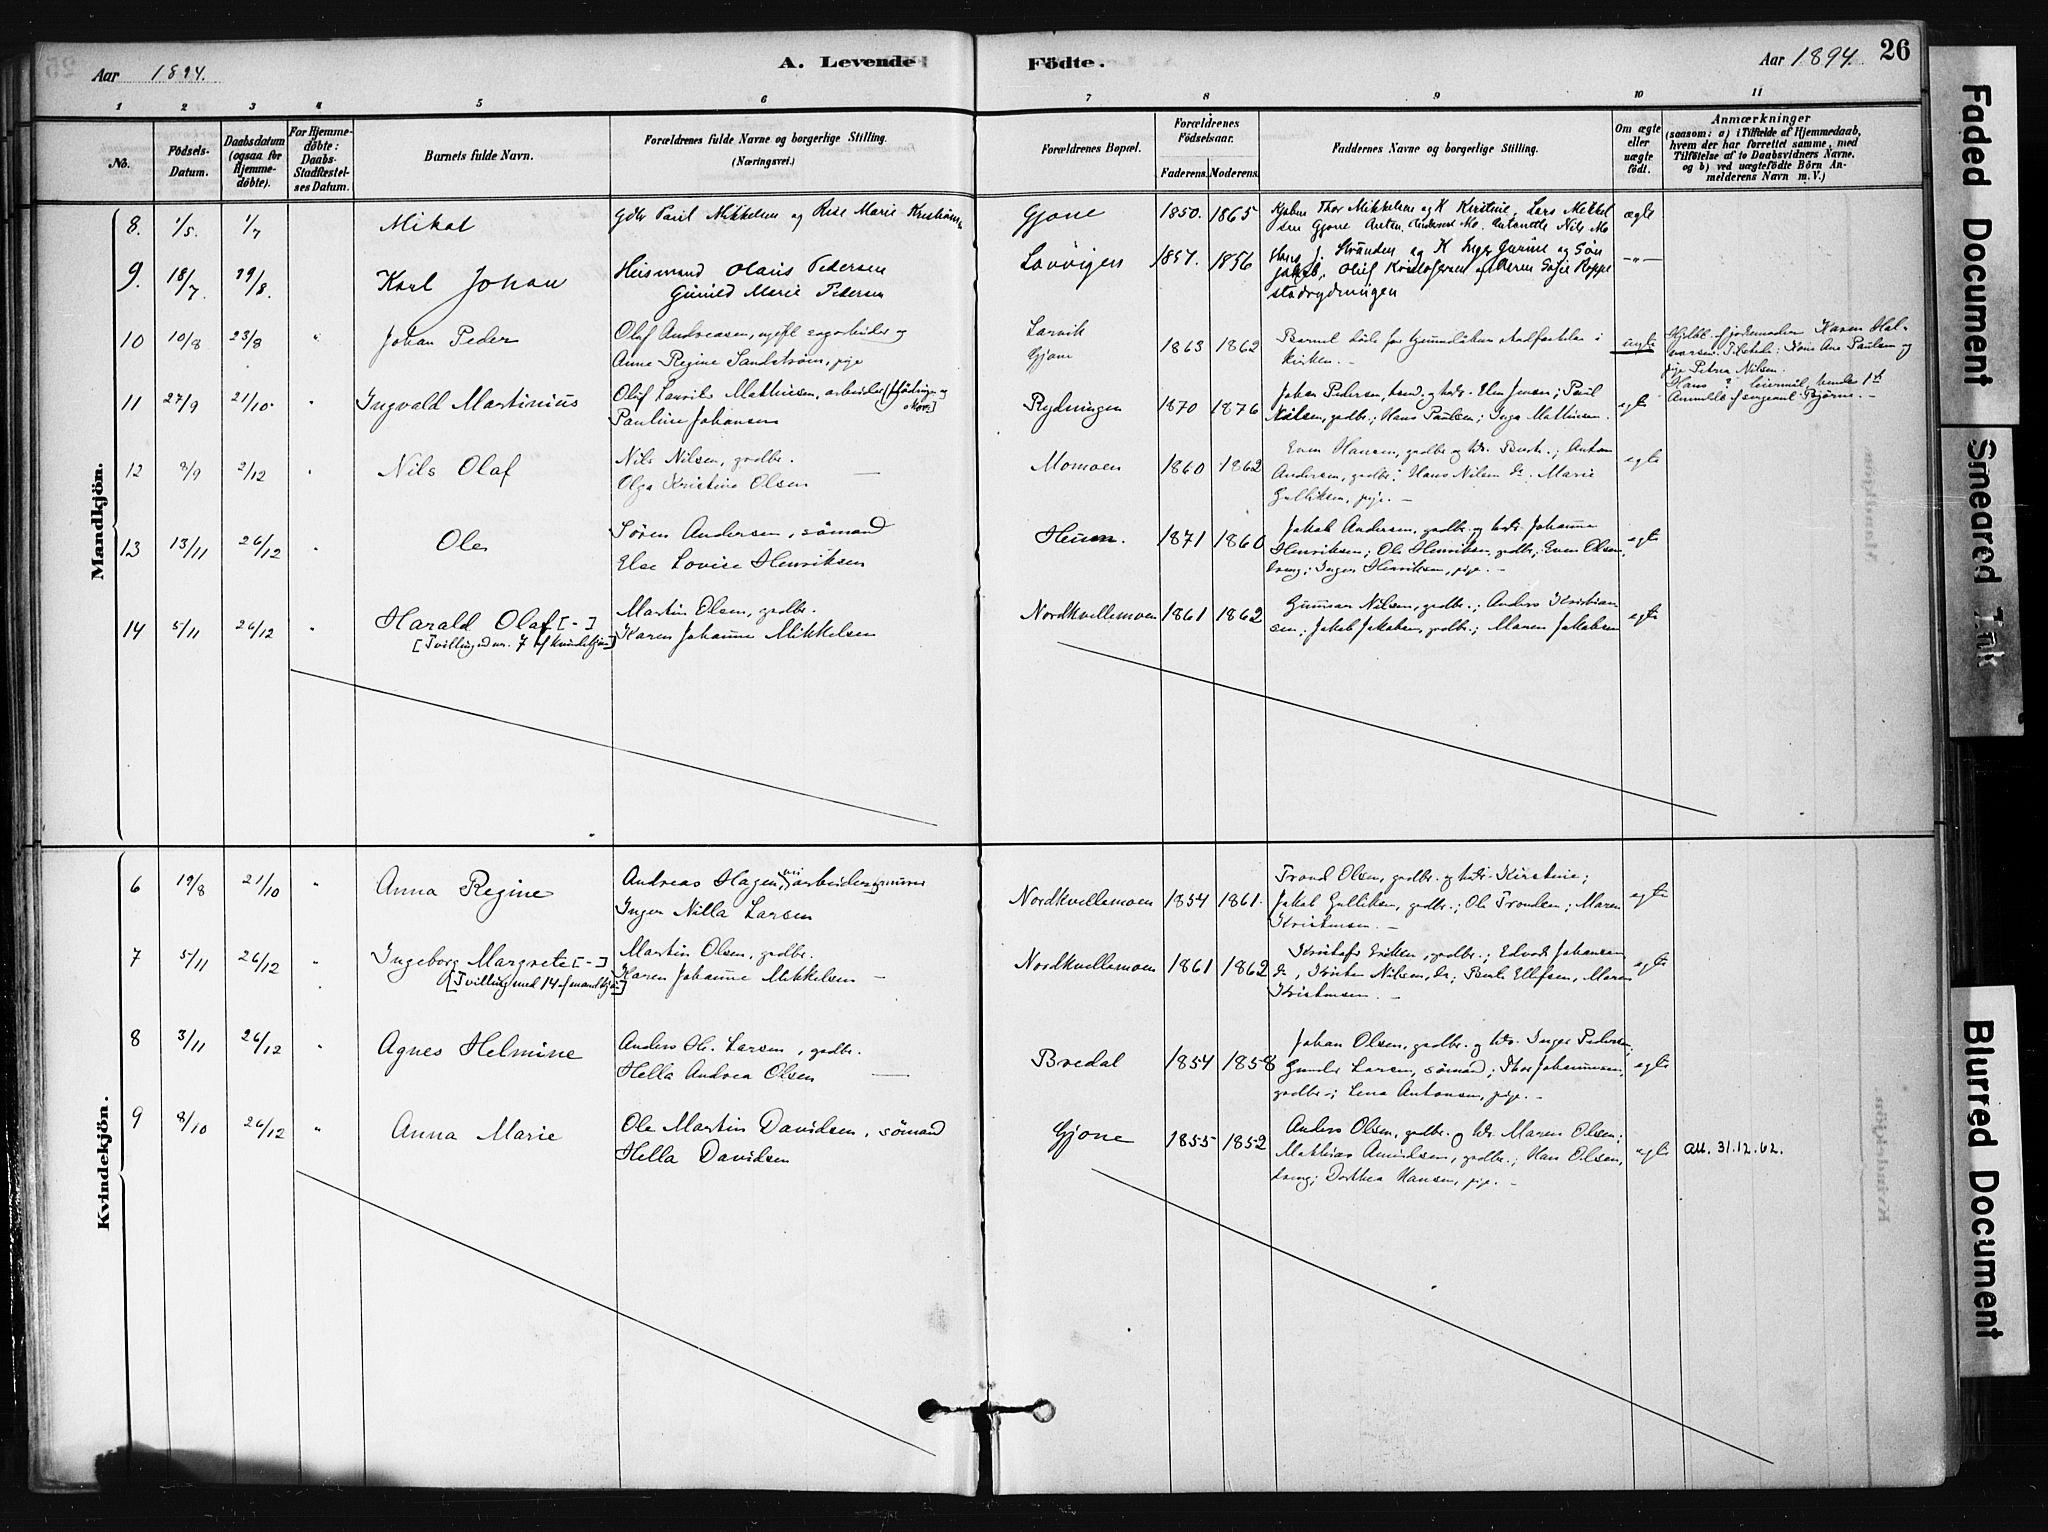 Aar 1894.
A. Levende
Födte.
Aar 1894.
26
1 2 3 4 5 6 7 8 9 10 11
No.
Födsels-Datum.
Daabsdatum (ogsaa for Hjemmedöbte).
For Hjemmedöbte: Daabs-Stadfæstelses Datum.
Barnets fulde Navn.
Forældrenes fulde Navne og borgerlige Stilling. (Næringsvei.)
Forældrenes Bopæl.
Forældrenes Födselsaar.
Faderens. Moderens.
Faddernes Navne og borgerlige Stilling.
Om ægte eller uægte födt.
Anmærkninger
(saasom: a) i Tilfælde af Hjemmedaab, hvem der har forrettet samme, med Tilföielse af to Daabsvidners Navne, og b) ved uægtefödte Börn Anmelderens Navn m. V.)
Mandkjön.
8. 1/5. 1/7 Mikal
Mikkelsen og Marie
Gjone 1850. 1865
Thor Mikkelsen og K Kirstine, Lars Mikkel
sen Gjone Nils Mo
ægte
9. 18/7. 29/8. Karl Johan
Huismand Olaus Pedersen
Gunild Marie Pedersen
Lövvigen 1857. 1856
Hans J. Stranden og K Inger Gurine og Sön
Jakob, Oluf Kristofersen Maren Sofie Roppe
stadrydningen
-"-
10 10/8 23/8 " Johan Peder
Olaf Andreasen, ugift sagarbeider og
Anne Regine Sandström, pige
Larvik
Gjone
1863 1862
Barnet döbt for hjemmedaaben stadfæstelse i
kirken. -
uegte
jordemoder Karen Hal-
vorsen. Kone Ane Paulsen og
pige Petrea Nilsen.
Hans ? leiermål, hendes 1st
Anmeldt af sergeant Bjørne. -
11 27/9 21/10. " Ingvald Martinius
Olaf Laurits Mathisen, arbeider
Pauline Johansen
Rydningen 1870 1876
Johan Pedersen, Paul
Nilsen, gadbr.; Hans Paulsen; Inga Mathisen.
egte
12 8/9 2/12 " Nils Olaf
Nils Nilsen, gadbr.
Olga Kristine Olsen
Momoen 1860 1862
Even Hansen, gadbr. og Anton
Andersen, gadbr.; Hans Nilsen do. Marie
Gulliksen, pige. -
egte
13 13/11 26/12 " Ole
Sören Andersen, sömand
Else Lovise Henriksen
Heum. 1871 1860
Jakob Andersen, gadbr. og Johanne
Henriksen; Ole Henriksen, gadbr.; Even Olsen,
Inger Henriksen, pige. -
egte
14 5/11 26/12 " Harald Olaf [-]
[Tvilling med nr. 7 af kvindekjön]
Martin Olsen, gadbr.
Karen Johanne Mikkelsen
Nordkvellemoen 1861 1862
Gunnar Nilsen, gadbr.; Anders Kristian
sen; Jakob Jakobsen, gadbr.; Maren Jakobsen
egte
Kvindekjön.
6 19/8 21/10 " Anna Regine
Andreas Hagen, arbeider
Inger Nilla Larsen
Nordkvellemoen 1854 1861.
Trond Olsen, gadbr. og Kirstine;
Jakob Gulliksen, gadbr.; Ole Trondsen; Maren
Kristensen. -
egte
7 5/11 26/12 " Ingeborg Margrete [-]
[Tvilling med 14 af mandkjön]
Martin Olsen, gadbr.
Karen Johanne Mikkelsen -
Nordkvellemoen 1861 1862
Kristofer Eriksen, gadbr.; Edvard Johansen
do, Kristen Nilsen, do; Berte Ellefsen, Maren
Kristensen. -
egte
8 3/11 26/12 " Agnes Helmine
Anders Ol. Larsen, gadbr.
Hella Andrea Olsen
Bredal 1854 1858
Johan Olsen, gadbr. og Inger Pedersen;
Gunder Larsen, sömand; Thor Johannesen,
gadbr; Lena Antonsen, pige. -
egte
9 8/10 26/12 " Anna Marie
Ole Martin Davidsen, sömand
Hella Davidsen
Gjone 1855 1852
Anders Olsen, gadbr. og Maren Olsen;
Mathias Amundsen, gadbr.; Hans Olsen,
Dorthea Hansen, pige. -
egte
att. 31.12.62.
Faded Document
Smeared Ink
Blurred Document